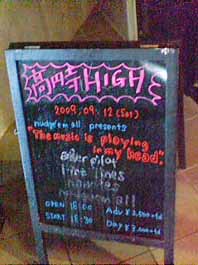 高円寺HIGH
2009.09.12 (Sat)
nudge'em all presents
"The music is playing
in my head".
caller pilot
nudge'em all
OPEN 18:00 Adv ¥2,500+1d
START 18:30 Day ¥3,000+1d